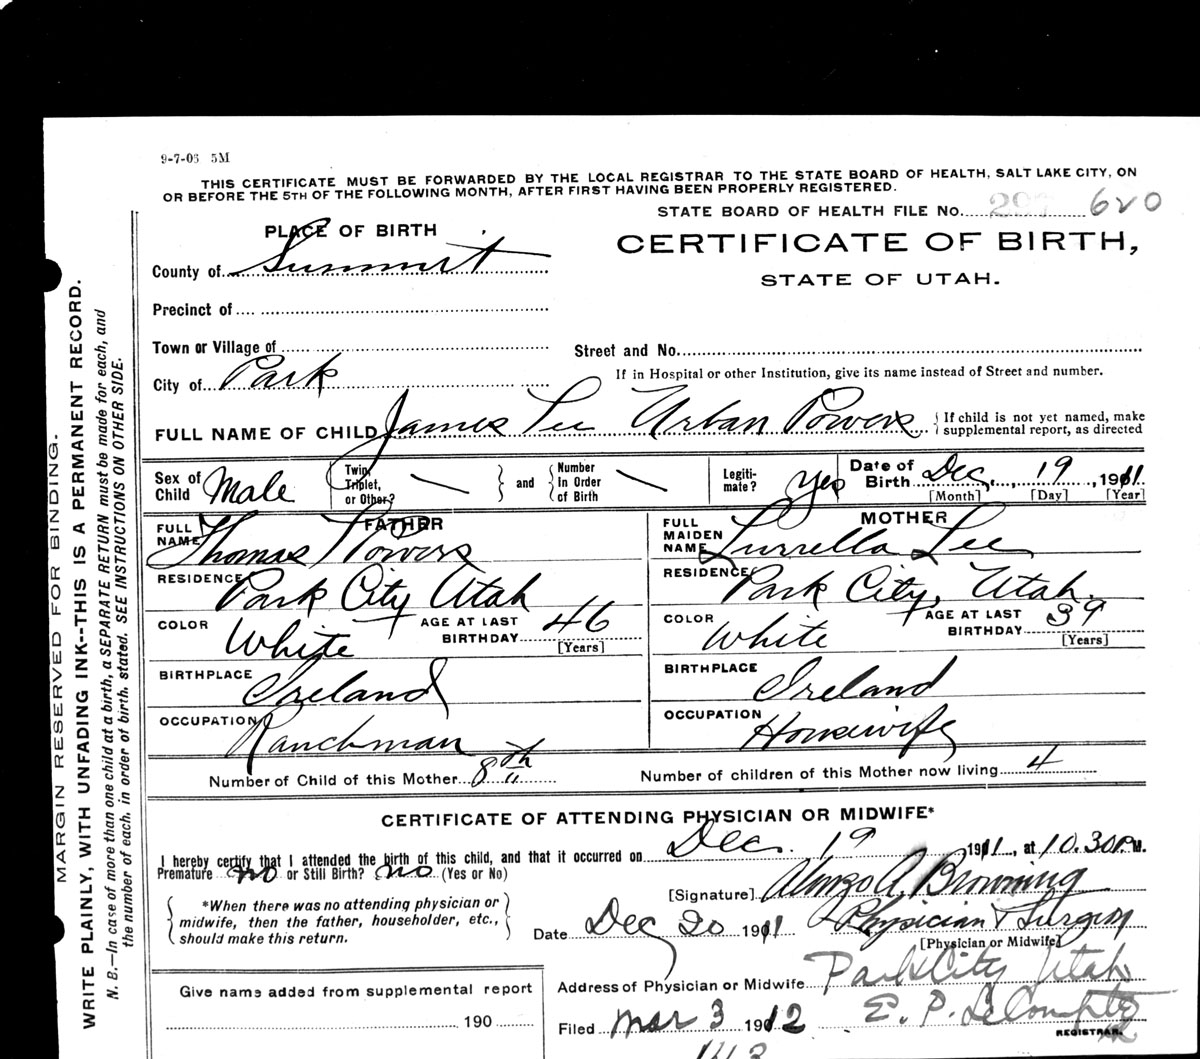 9-7-06 5M
THIS CERTIFICATE MUST BE FORWARDED BY THE LOCAL REGISTRAR TO THE STATE BOARD OF HEALTH, SALT LAKE CITY, ON
OR BEFORE THE 5TH OF THE FOLLOWING MONTH, AFTER FIRST HAVING BEEN PROPERLY REGISTERED.
STATE BOARD OF HEALTH FILE No. 620
PLACE OF BIRTH
CERTIFICATE OF BIRTH,
STATE OF UTAH.
County of Summit
Precinct of
Town or Village of
Street and No.
City of Park
If in Hospital or other Institution, give its name instead of Street and number.
FULL NAME OF CHILD James Lee Urban Powers { If child is not yet named, make supplemental report, as directed
Sex of Child Male Twin, Triplet, or Other? — } and { Number In Order of Birth — Legiti-mate? Yes Date of Birth Dec. 19 1911
[Month] [Day] [Year]
FATHER
FULL NAME Thomas Powers
RESIDENCE Park City Utah
COLOR White AGE AT LAST BIRTHDAY 46 [Years]
BIRTHPLACE Ireland
OCCUPATION Ranchman
MOTHER
FULL MAIDEN NAME Lurrella Lee
RESIDENCE Park City, Utah.
COLOR White AGE AT LAST BIRTHDAY 39 [Years]
BIRTHPLACE Ireland
OCCUPATION Housewife
Number of Child of this Mother 8th Number of children of this Mother now living 4
CERTIFICATE OF ATTENDING PHYSICIAN OR MIDWIFE*
I hereby certify that I attended the birth of this child, and that it occurred on Dec. 19 1911, at 10.30 P.M.
Premature no or Still Birth? no (Yes or No)
[Signature] Alonzo A. Browning
*When there was no attending physician or
midwife, then the father, householder, etc.,
should make this return.
Date Dec 20 1911 Physician & Surgeon
[Physician or Midwife]
Give name added from supplemental report
190
Address of Physician or Midwife Park City Utah
Filed Mar 3 1912 E. P. LeCompte
REGISTRAR.
MARGIN RESERVED FOR BINDING.
WRITE PLAINLY, WITH UNFADING INK--THIS IS A PERMANENT RECORD.
N. B.—In case of more than one child at a birth, a SEPARATE RETURN must be made for each, and
the number of each, in order of birth, stated. SEE INSTRUCTIONS ON OTHER SIDE.